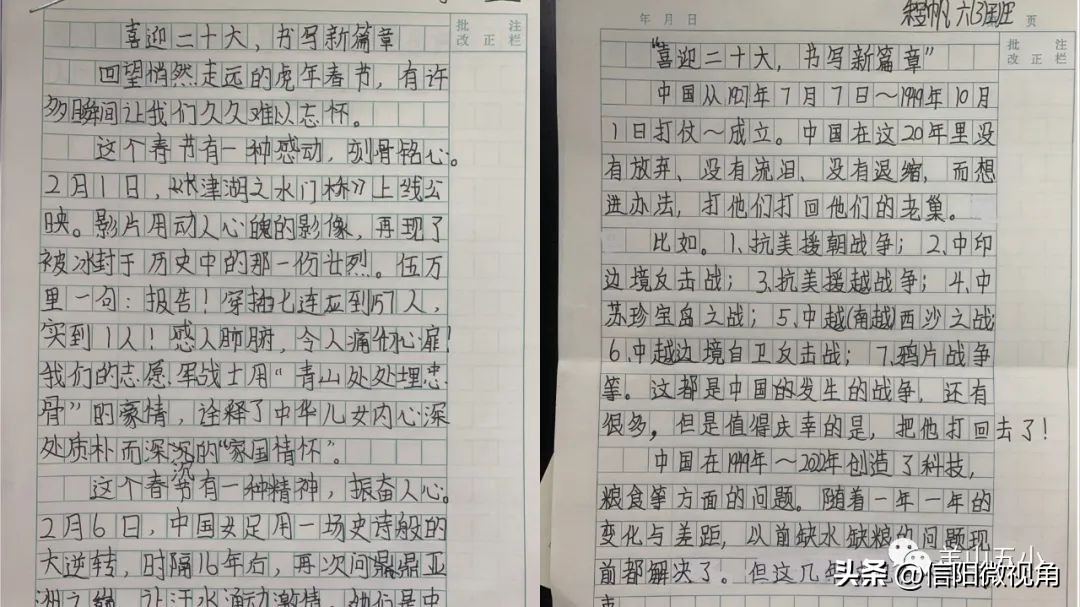 批 注
改 正 栏
喜迎二十大，书写新篇章
回望悄然走远的虎年春节，有许
多瞬间让我们久久难以忘怀。
这个春节有一种感动，刻骨铭心。
2月1日，《长津湖之水门桥》上线公
映。影片用动人心魄的影像，再现了
被冰封于历史中的那一份壮烈。伍万
里一句：报告！穿插七连应到157人，
实到1人！感人肺腑，令人痛彻心扉！
我们的志愿军战士用“青山处处埋忠
骨”的豪情，诠释了中华儿女内心深
处质朴而深沉的“家国情怀”。
沉
这个春节有一种精神，振奋人心。
2月6日，中国女足用一场史诗般的
大逆转，时隔16年后，再次问鼎亚
洲之巅
年 月 日
六(3)班
页
批 注
改 正 栏
“喜迎二十大，书写新篇章”
中国从1927年7月7日～1949年10月
1日打仗～成立。中国在这20年里没
有放弃、没有流泪、没有退缩，而想
进办法，打他们打回他们的老巢。
比如。1、抗美援朝战争；2、中印
边境反击战；3、抗美援越战争；4、中
苏珍宝岛之战；5、中越(南越)西沙之战
6、中越边境自卫反击战；7、鸦片战争
等。这都是中国的发生的战争，还有
很多，但是值得庆幸的是，把他打回去了！
中国在1949年～2022年创造了科技，
粮食等方面的问题。随着一年一年的
变化与差距，以前缺水缺粮的问题现
前都解决了。但这几
羊山五小
头条@信阳微视角